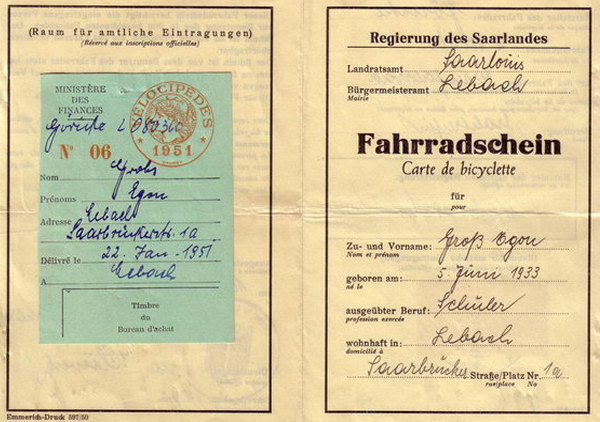 (Raum für amtliche Eintragungen)
(Réservé aux inscriptions officielles)
MINISTÈRE
DES
FINANCES
VÉLOCIPÈDES
1951
Göricke L 080310
N° 06
Nom Groß
Prénoms Egon
Adresse Lebach
Saarbrückerstr. 1a
Délivré le 22. Jan. 1951
A Lebach
Timbre
du
Bureau d'achat
Emmerich-Druck 597/50
Regierung des Saarlandes
Landratsamt Saarlouis
Bürgermeisteramt Lebach
Mairie
Fahrradschein
Carte de bicyclette
für
pour
Zu- und Vorname: Groß Egon
Nom et prénom
geboren am: 5. Juni 1933
né le
ausgeübter Beruf: Schüler
profession exercée
wohnhaft in: Lebach
domicilié à
Saarbrücker Straße/Platz Nr. 1a
rue/place No